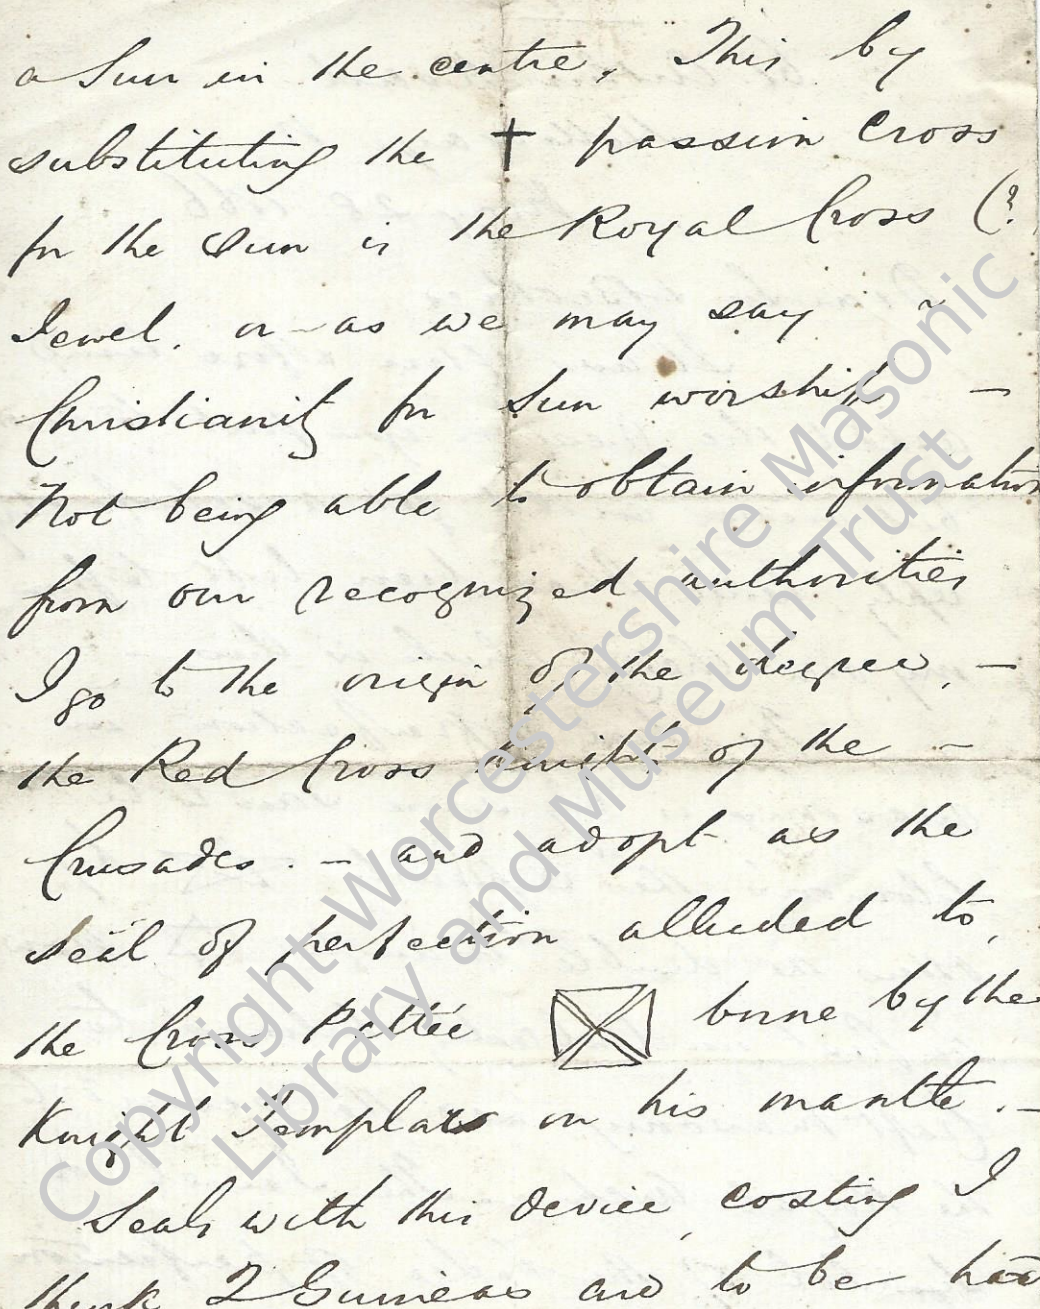 a Sun in the centre. This by
substituting the passion Cross
for the Sun is the Royal Cross (?
Jewel. or as we may say
Christianity for Sun worship —
Not being able to obtain information
from our recognized authorities
I go to the origin of the degree, —
the Red Cross Knight of the —
Crusades. — and adopt as the
seal of perfection alluded to,
the Cross Pattée borne by the
Knight Templars on his mantle. —
Seals with this device, costing I
think 2 Guineas and to be had
Copyright Worcestershire Masonic
Library and Museum Trust